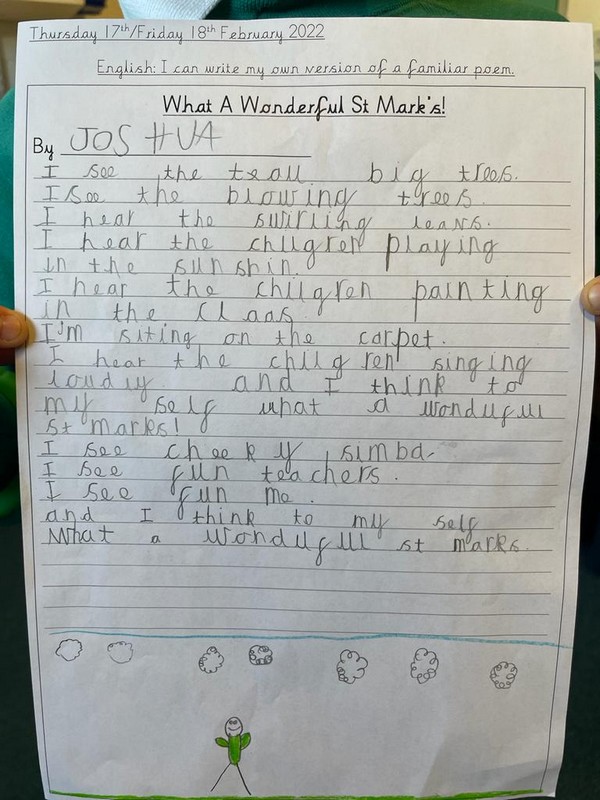 Thursday 17th/Friday 18th February 2022
English: I can write my own version of a familiar poem.
What A Wonderful St Mark's!
By JOSHUA
I see the teall big trees.
I see the blowing trees
I hear the swirling leavs.
I hear the chilgren playing
in the sunshin.
I hear the chilgren painting
in the Claas
I'm siting on the carpet.
I hear the chilgren singing
loudly and I think to
my self what a wondufull
st marks!
I see cheeky simba
I see fun teachers.
I see fun me.
and I think to my self
What a wondufull st marks.